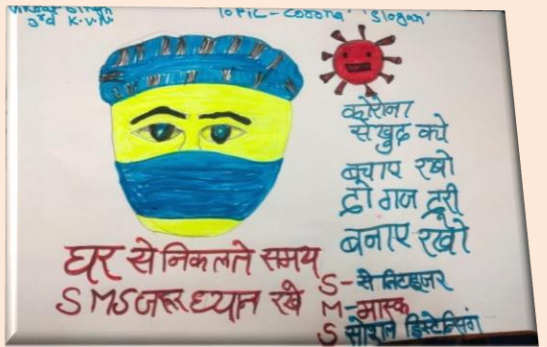 3rd K.V.N.
TOPIC - Corona 'Slogan'
कोरोना
से खुद को
बचाए रखो
दो गज दूरी
बनाए रखो
घर से निकलते समय
SMS जरूर ध्यान रखे
S - सेनिटाइजर
M - मास्क
S सोशल डिस्टेन्सिंग